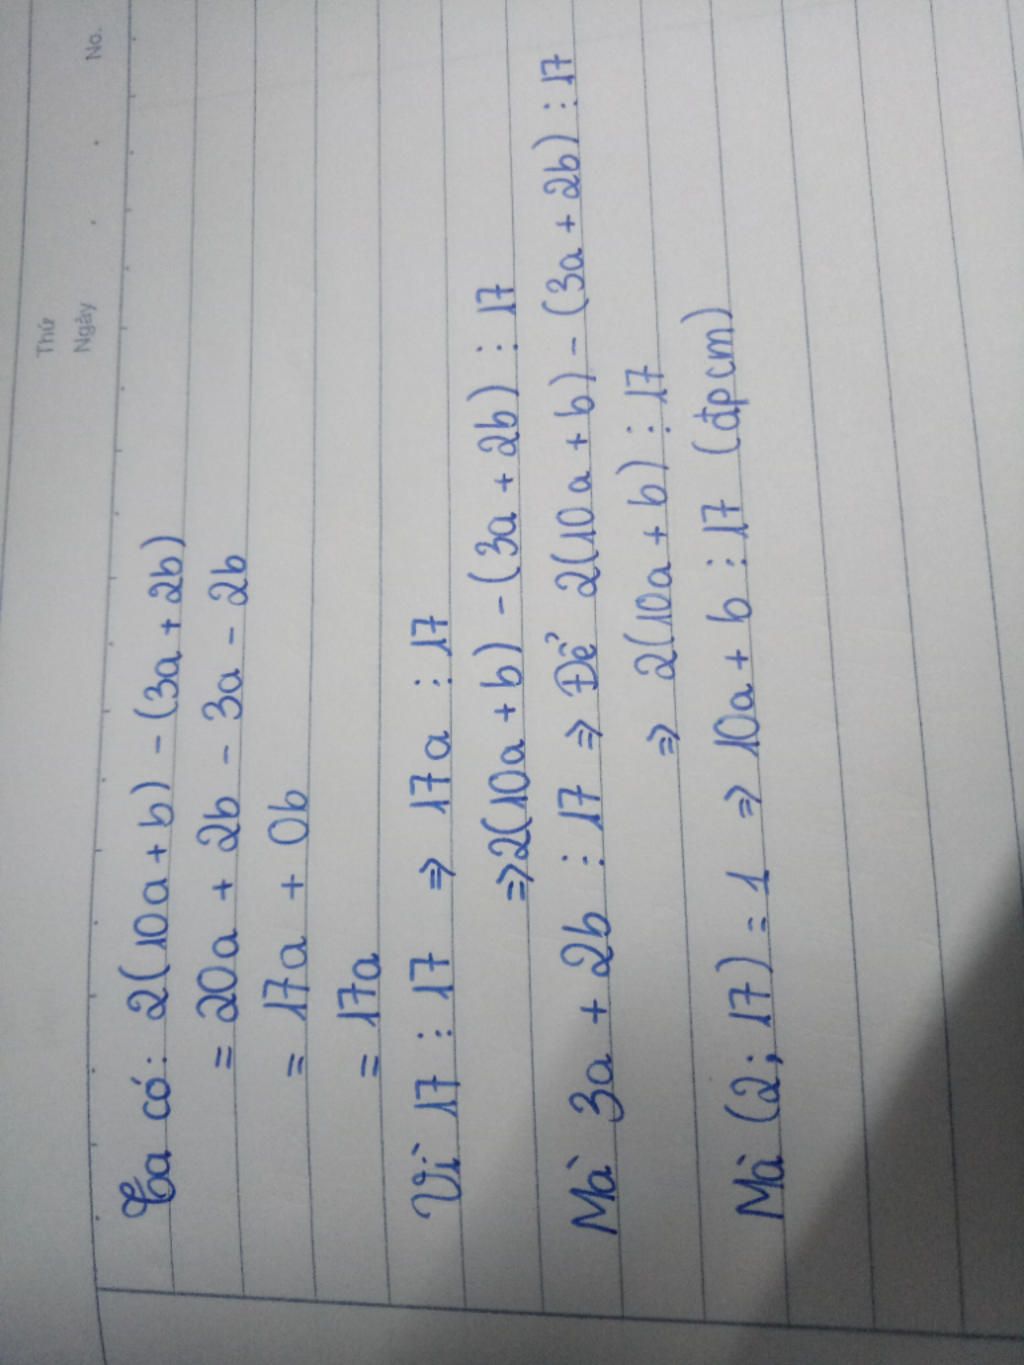 Thứ
Ngày . . No.
Ta có: 2(10a + b) - (3a + 2b)
= 20a + 2b - 3a - 2b
= 17a + 0b
= 17a
Vì 17 ⋮ 17 ⇒ 17a ⋮ 17
⇒ 2(10a + b) - (3a + 2b) ⋮ 17
Mà 3a + 2b ⋮ 17 ⇒ Để 2(10a + b) - (3a + 2b) ⋮ 17
⇒ 2(10a + b) ⋮ 17
Mà (2; 17) = 1 ⇒ 10a + b ⋮ 17 (đpcm)